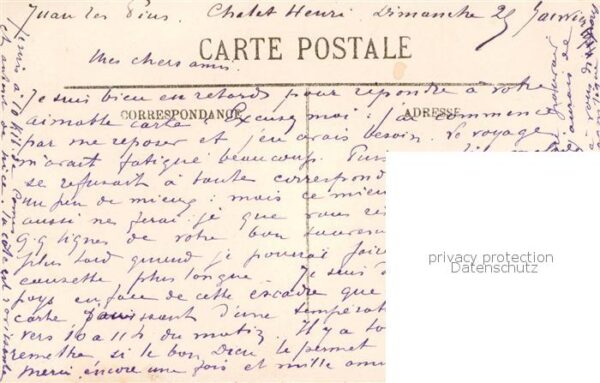 Juan les Pins, Chalet Henri. Dimanche 25 Janvier
Mes chers amis.
CARTE POSTALE
CORRESPONDANCE
ADRESSE
Je suis bien en retard pour répondre à votre
aimable carte. Excusez moi : j'ai commencé
par me reposer et j'en avais besoin. Le voyage
m'avait fatigué beaucoup.
se refusait à toute correspond
un peu de mieux ; mais ce n'est
aussi ne ferai je que vous
qq lignes de votre bon souvenir
plus tard quand je pourrai faire
causette plus longue. Je suis
pays en face de cette escadre que
carte jouissant d'une températ
vers 10 a 11 h du matin. Il y a
remettra si le bon Dieu le permet
Merci encore une fois et mille ami
Je suis à 10 Kil. de Cannes
et autant de Nice. La côte est ravissante
privacy protection
Datenschutz